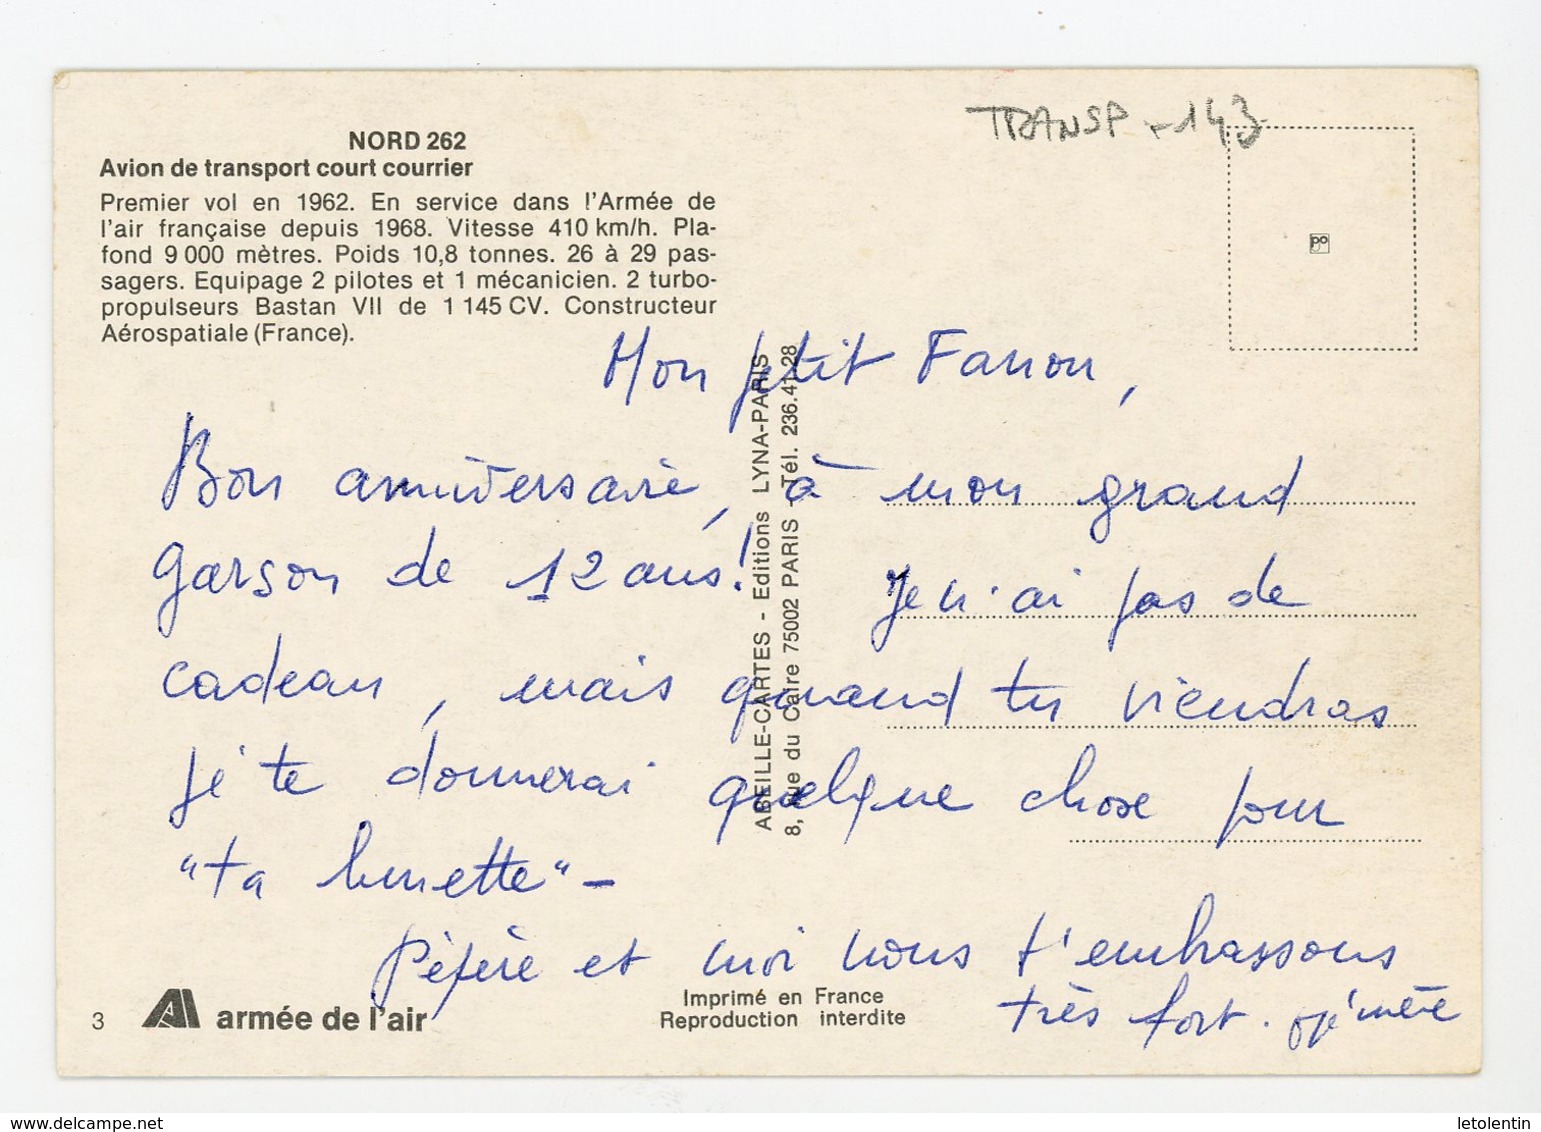 TRANSP - 143
NORD 262
Avion de transport court courrier
Premier vol en 1962. En service dans l'Armée de
l'air française depuis 1968. Vitesse 410 km/h. Pla-
fond 9 000 mètres. Poids 10,8 tonnes. 26 à 29 pas-
sagers. Equipage 2 pilotes et 1 mécanicien. 2 turbo-
propulseurs Bastan VII de 1 145 CV. Constructeur
Aérospatiale (France).
po
Mon ptit Fanon,
Bon anniversaire, à mon grand
garson de 12 ans! Je n'ai pas de
cadeau, mais quand tu viendras
je te donnerai quelque chose pour
"ta burette" -
Pépère et moi nous t'embrassons
très fort.
ABEILLE-CARTES - Editions LYNA-PARIS
8, rue du Caire 75002 PARIS - Tél. 236.41.28
3
armée de l'air
Imprimé en France
Reproduction interdite
www.delcampe.net
letolentin